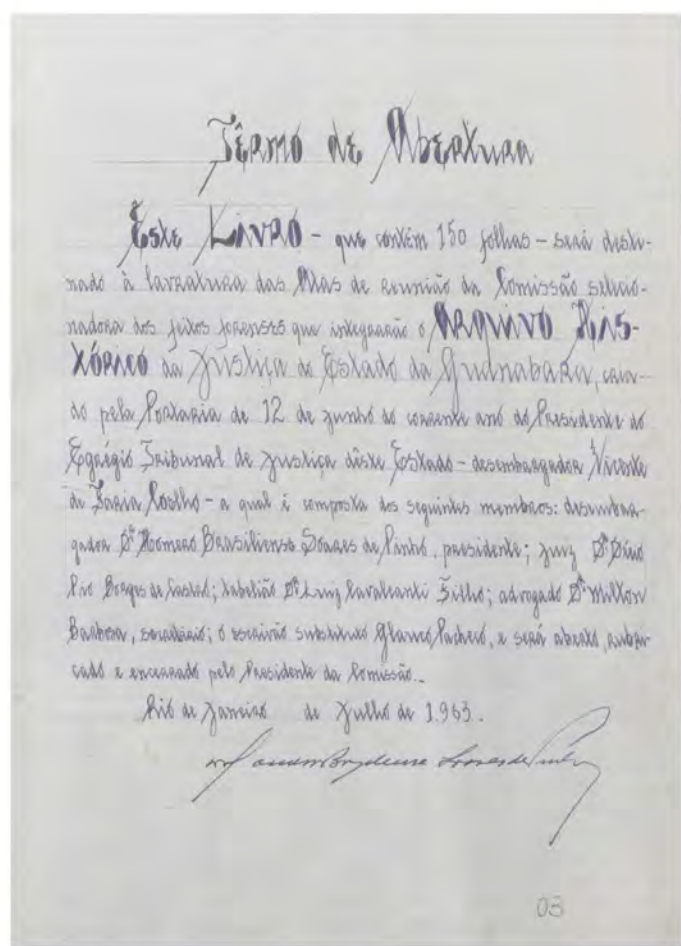 Têrmo de Abertura
Êste Livro - que contém 150 folhas - será desti-
nado à lavratura das Atas de reunião da Comissão selecio-
nadora dos feitos forenses que integrarão o Arquivo His-
tórico da Justiça do Estado da Guanabara, cria-
do pela Portaria de 12 de junho do corrente ano do Presidente do
Egrégio Tribunal de Justiça dêste Estado - desembargador Vicente
de Faria Coelho - a qual é composta dos seguintes membros: desembar-
gador Dr. Homero Brasiliense Soares de Pinho, presidente; juiz Dr.
Pio Borges de Castro; tabelião Dr. Luiz Cavalcanti Filho; advogado Dr. Milton
Barbosa, secretário; o escrivão substituto Glauco Pacheco, e será aberto, rubri-
cado e encerrado pelo Presidente da Comissão.
Rio de Janeiro de Julho de 1.963.
Soares de Pinho
03